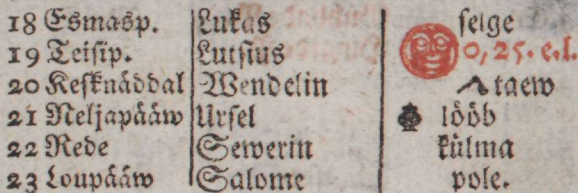 18 Esmasp. Lukas selge
19 Teisip. Lutsius 0,25. e.l.
20 Kesknäddal Wendelin taew
21 Neljapääw Ursel lööb
22 Rede Sewerin külma
23 Loupääw Salome pole.